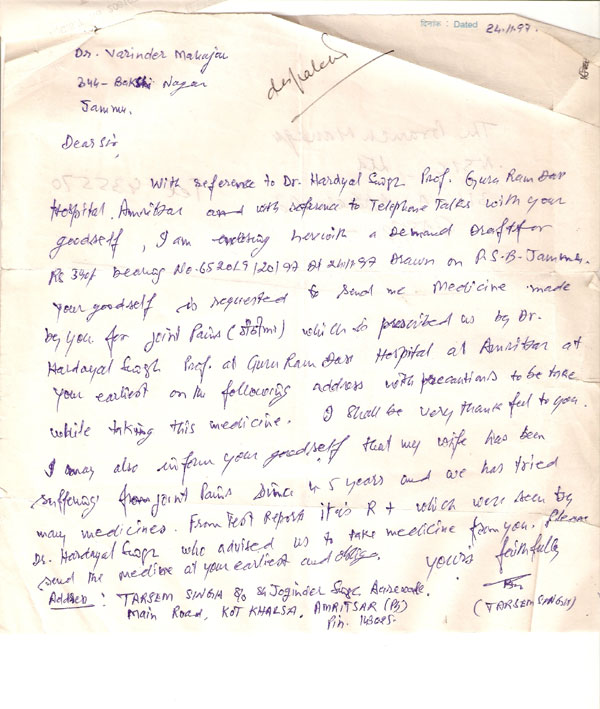 दिनांक : Dated 24.11.97.
Dr. Varinder Mahajan
344- Bakshi Nagar
Jammu.
despatched
Dear Sir,
With reference to Dr. Hardyal Singh Prof. Guru Ram Das
Hospital, Amritsar and with reference to Telephone Talks with your
goodself, I am enclosing herewith a Demand Draft for
Rs 390/- bearing No. 652019/20/97 Dt 24/11/97 Drawn on P.S.B- Jammu.
Your goodself is requested to send me Medicine made
by you for joint Pains which is prescribed us by Dr.
Hardayal Singh Prof. at Guru Ram Dass Hospital at Amritsar at
your earliest on the following address with precautions to be take
while taking this medicine. I shall be very thankfeel to you.
I may also inform your goodself that my wife has been
suffering from joint Pains since 4-5 years and we has tried
many medicines. From Test Report it is R + which were seen by
Dr. Hardyal Singh who advised us to take medicine from you. Please
send the medicine at your earliest and oblige.
yours faithfully
(TARSEM SINGH)
Address : TARSEM SINGH S/o Sh Joginder Singh
Main Road, KOT KHALSA, AMRITSAR (Pb)
Pin. 143085.